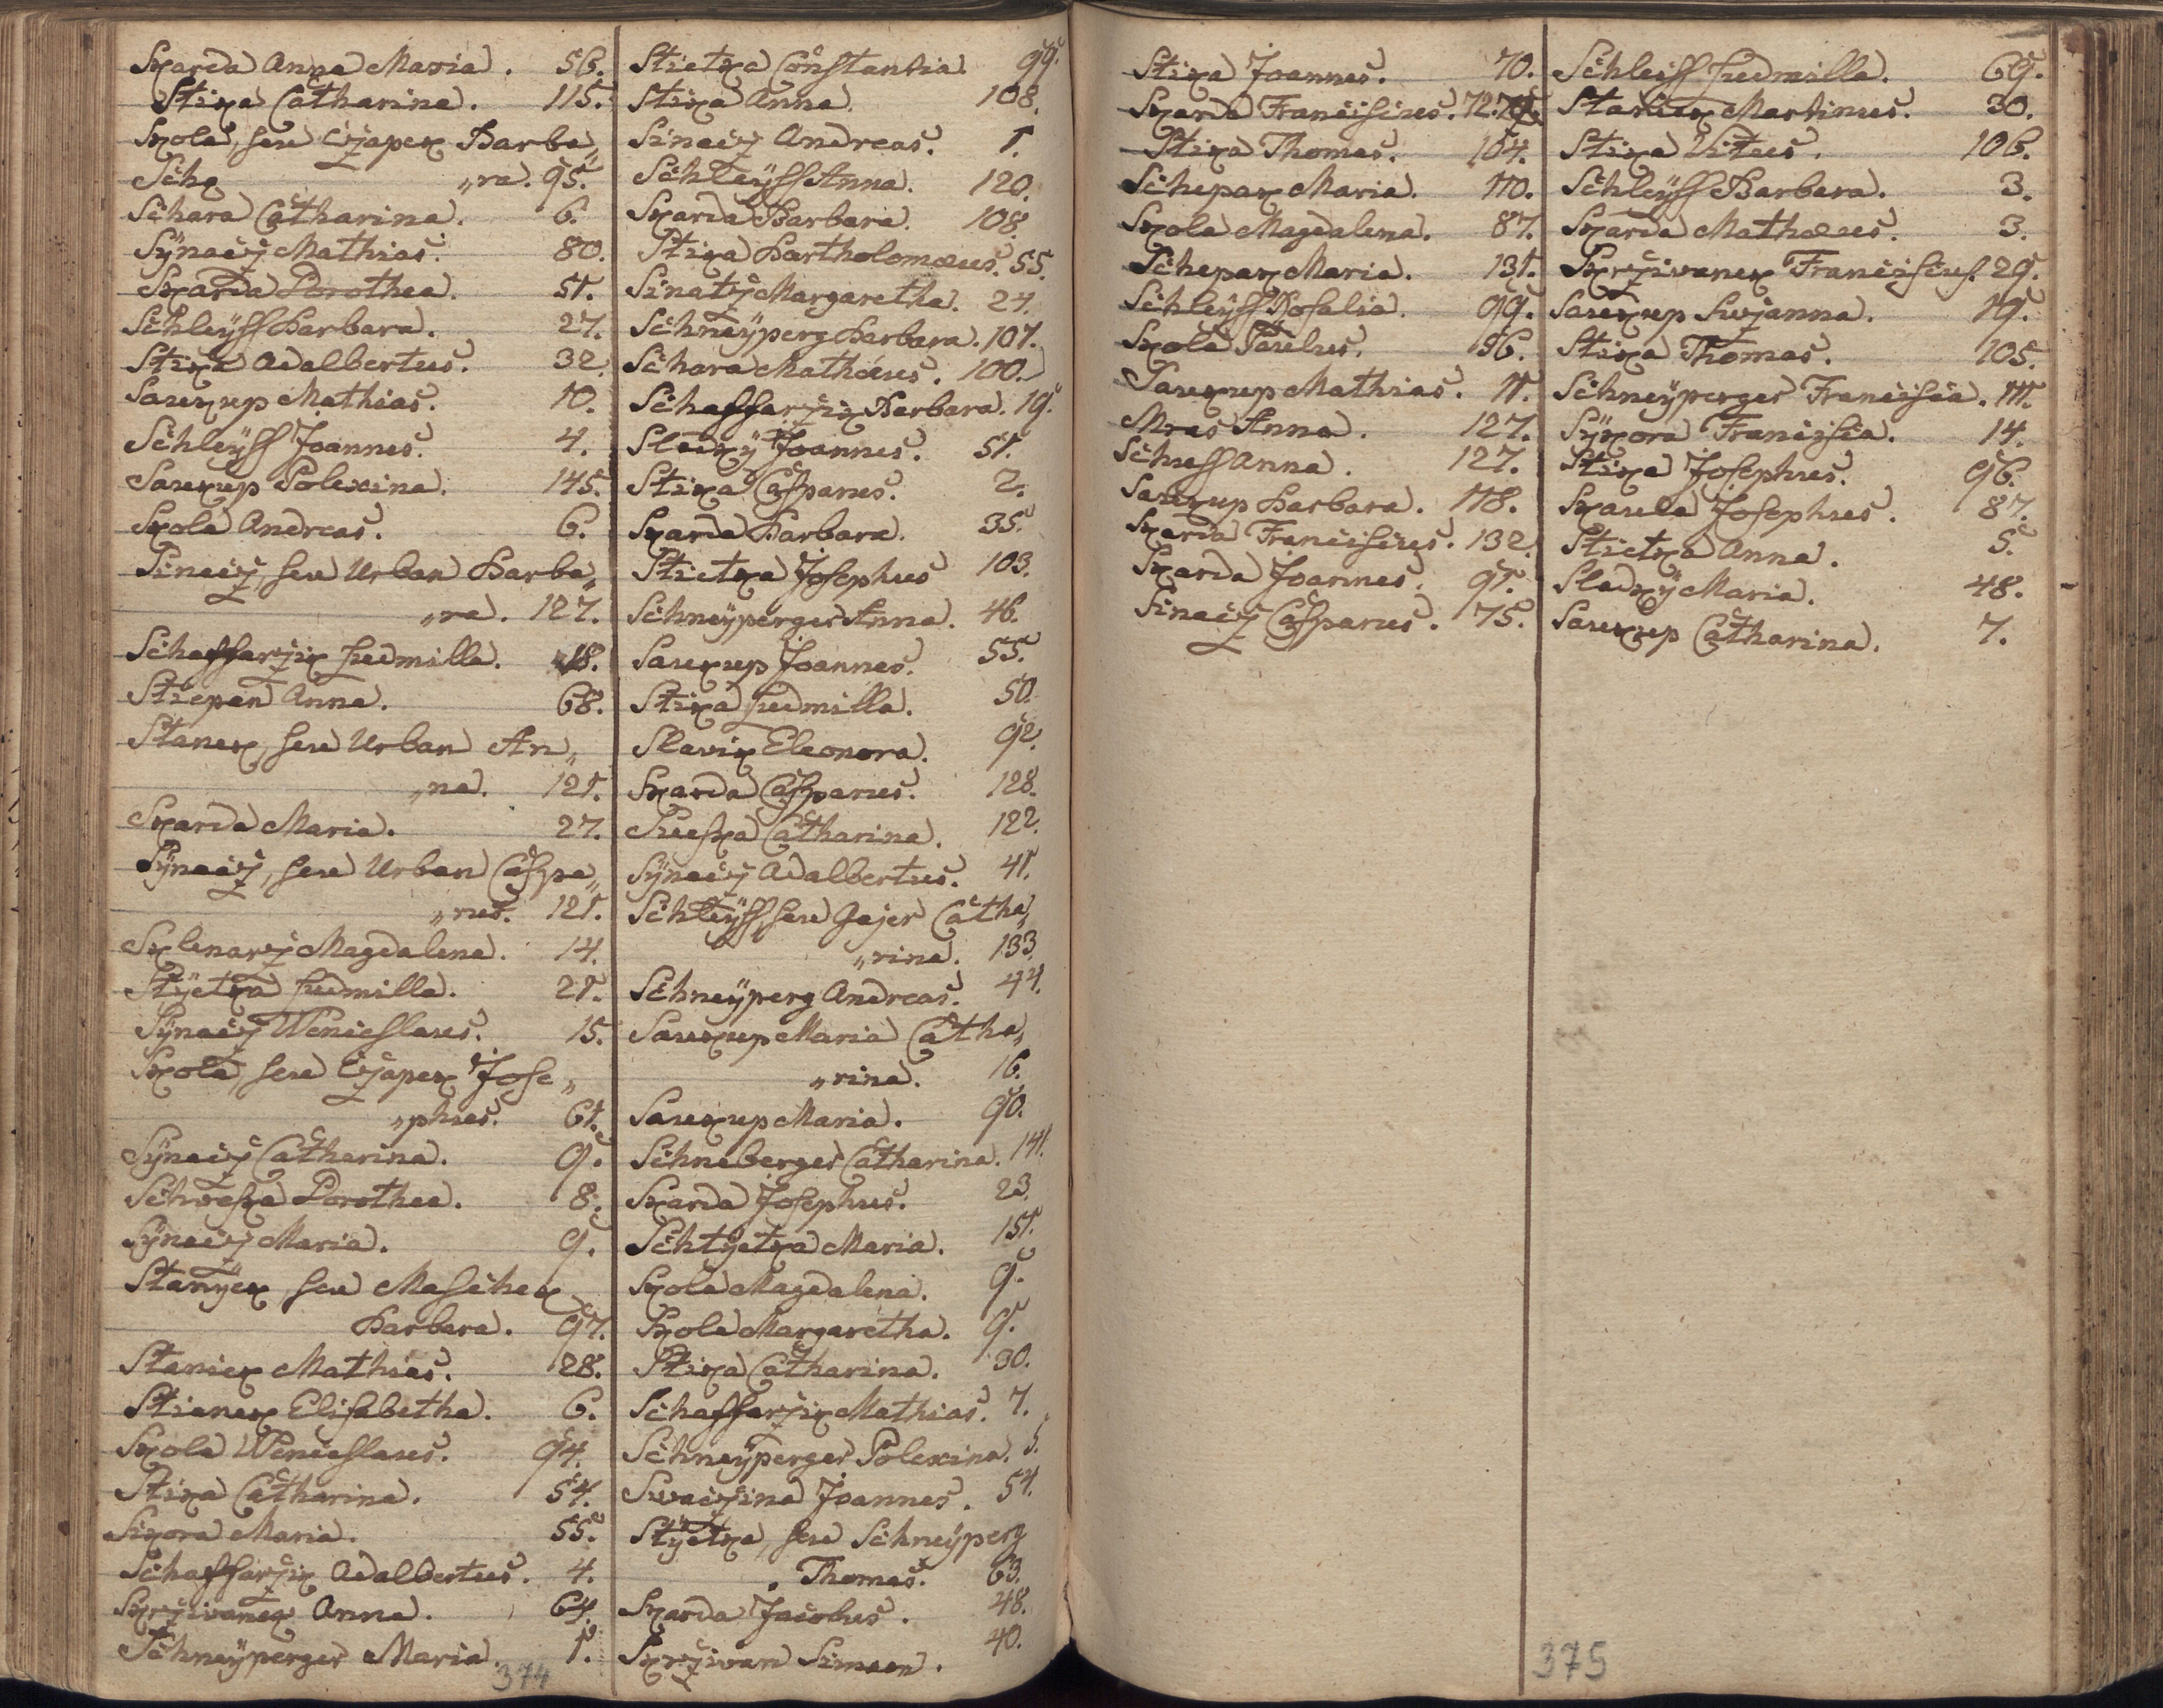 Skarda Anna Maria. 56.
Stika Catharina. 115.
Skola, seu Czapek Barba„
Sche „ra. 95.
Schara Catharina. 6.
Sÿnacz Mathias. 80.
Skarda Dorothea. 51.
Schleÿss Barbara. 27.
Stika Adalbertus. 32.
Saukup Mathias. 10.
Schleÿss Joannes. 4.
Saukup Polexina. 145.
Skola Andreas. 6.
Sinacz, seu Urban Barba„
„ra. 127.
Schaffarzik Ludmilla. 18.
Stiepan Anna. 68.
Stanek, seu Urban An„
„na. 121.
Skarda Maria. 27.
Sÿnacz, seu Urban Caspa„
„rus. 121.
Sklenarz Magdalena. 14.
Stÿetka Ludmilla. 21.
Sÿnacz Wenceslaus. 15.
Skola, seu Czapek Jose„
„phus. 61.
Sÿnacz Catharina. 9.
Schweska Dorothea. 8.
Sÿnacz Maria. 9.
Stanÿek, seu Maschek
Barbara. 97.
Staniek Mathias. 28.
Stianek Elisabetha. 6.
Skola Wenceslaus. 94.
Stika Catharina. 54.
Sikora Maria. 55.
Schaffarzik Adalbertus. 4.
Skrziwanek Anna. 64.
Schneÿperger Maria. 1.
374
Stietka Constantia. 99.
Stika Anna. 108.
Sinacz Andreas. 1.
Schleÿss Anna. 120.
Skarda Barbara. 108.
Stika Bartholomæus. 55.
Sinatz Margaretha. 24.
Schneÿperg Barbara. 107.
Schara Mathæus. 100.
Schaffarzik Barbara. 19.
Sladkÿ Joannes. 51.
Stika Casparus. 2.
Skarda Barbara. 35.
Stietka Josephus 103.
Schneÿperger Anna. 46.
Saukup Joannes. 55.
Stika Ludmilla. 50.
Slavik Eleonora. 92.
Skarda Casparus. 128.
Catharina. 122.
Sÿnacz Adalbertus. 41.
Schleÿss, seu Gajer Catha„
„rina. 133
Schneÿperg Andreas. 44.
Saukup Maria Catha„
„rina. 16.
Saukup Maria. 90.
Schneberger Catharina. 141.
Skarda Josephus. 23.
Schtÿetka Maria. 151.
Skola Magdalena. 9.
Skola Margaretha. 9.
Stika Catharina. 30.
Schaffarzik Mathias. 7.
Schneÿperger Polexina. 5.
Swaczina Joannes. 54.
Stÿetka, seu Schneÿperg
Thomas. 63.
Skarda Jacobus. 48.
Skrziwan Simeon. 40.
Stika Joannes. 70.
Skarda Franciscus. 72.
Stika Thomas. 104.
Schepak Maria. 110.
Skola Magdalena. 87.
Schepak Maria. 131.
Schleÿss Rosalia. 99.
Skola Paulus. 156.
Saukup Mathias. 11.
Mras Anna. 127.
Schuss Anna. 127.
Saukup Barbara. 118.
Skarda Franciscus. 132.
Skarda Joannes. 91.
Sinacz Casparus. 75.
Schleiss Ludmilla. 69.
Staniek Martinus. 30.
Stika Vitus. 106.
Schleÿss Barbara. 3.
Skarda Mathæus. 3.
Skrziwanek Franciscus. 29.
Saukup Suzanna. 19.
Stika Thomas. 105.
Schneÿperger Francisca. 111.
Sÿkora Francisca. 14.
Stika Josephus. 96.
Skaula Josephus. 87.
Stietka Anna. 5.
Sladkÿ Maria. 48.
Saukup Catharina. 7.
375